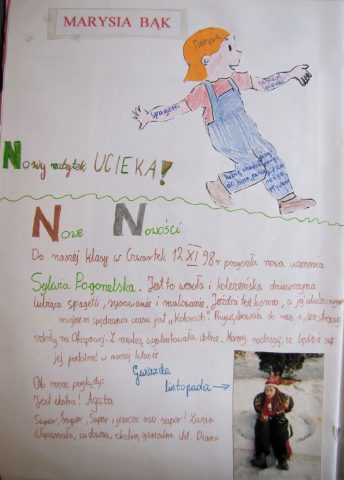 MARYSIA BĄK
Marysia
Spagetti
Nowy nabytek UCIEKA!
Nowe Nowości
Do naszej klasy w Czwartek 12 XI 98r przyszła nowa uczennica
Sylwia Pagonelska. Jest to wesoła i koleżeńska dziewczyna
lubiąca spagetti, rysowanie i malowanie. Jeździ też konno, a jej ulubionym
miejscem spędzania czasu jest „Kolorado”. Przywędrowała do nas z
szkoły na Okopowej. Z nauką wystartowała dobrze. Mamy nadzieję, że będzie się
jej podobać w naszej klasie
Gwiazda
listopada
Oto nasze poglądy:
Jest ekstra! Agata
Super, Super, Super i jeszcze raz super! Zuzia
Wspaniała, cudowna, ekstra, genialna itd. Diana